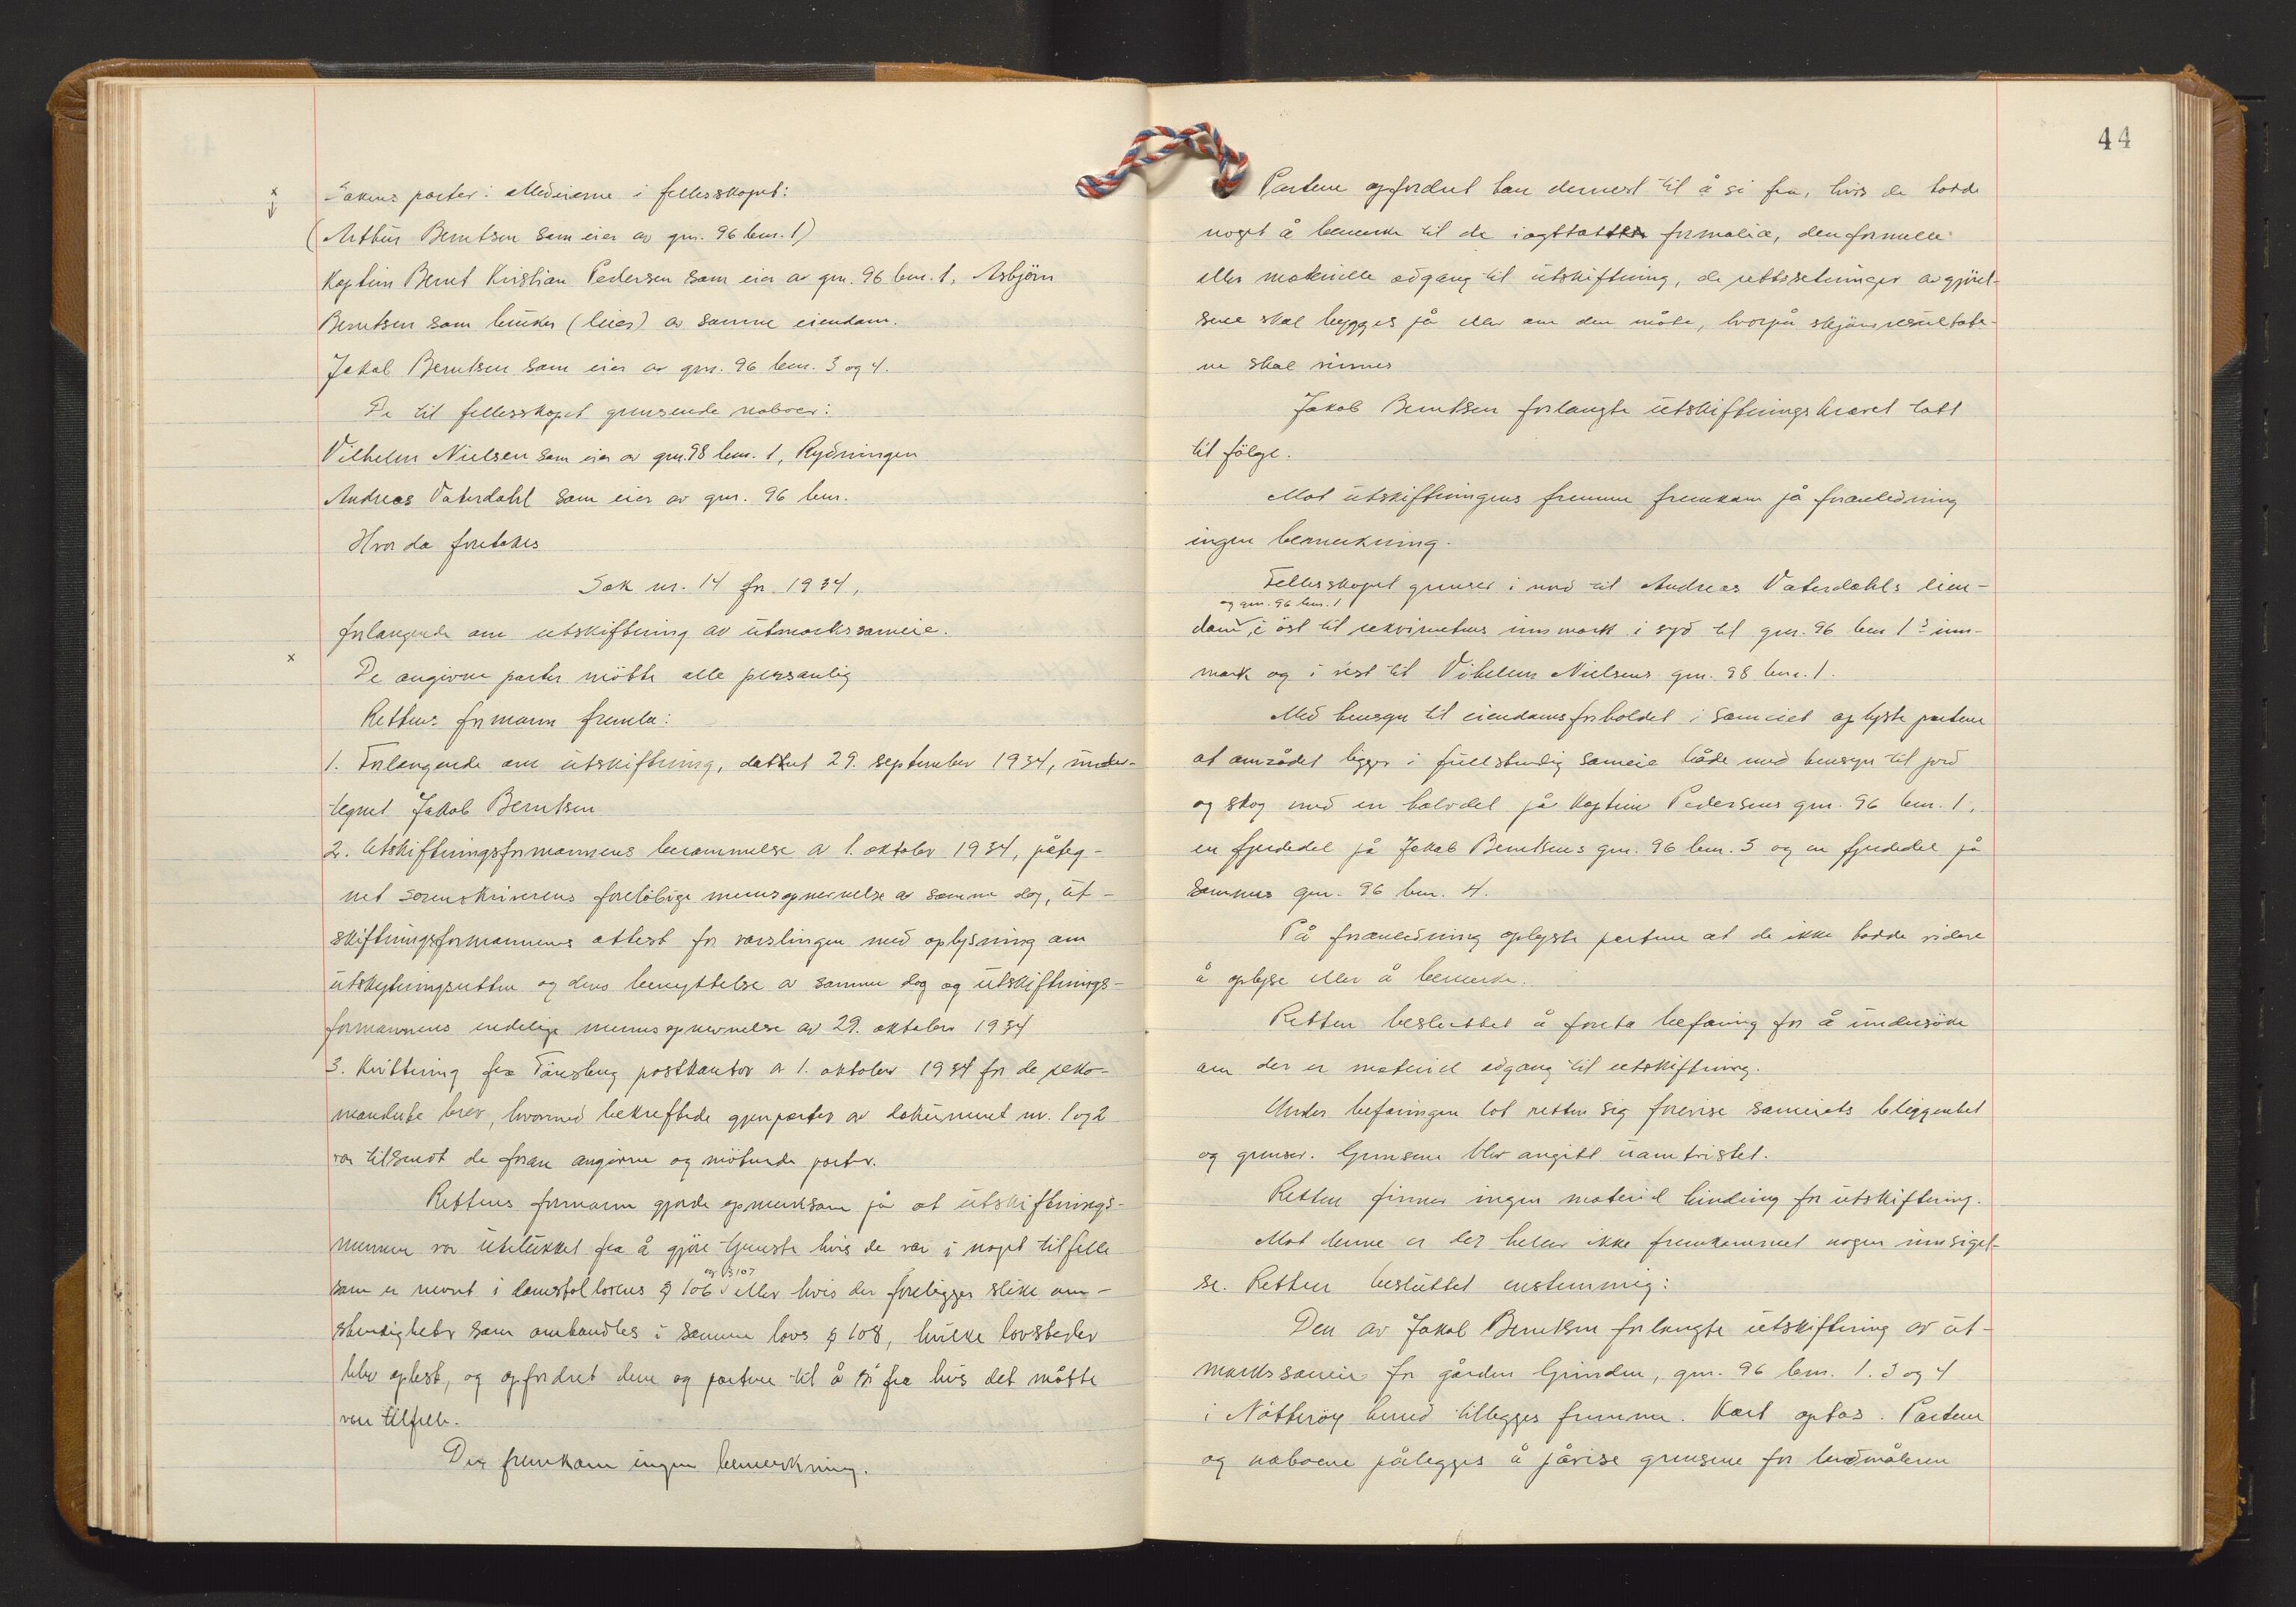 Sakens parter: Medeierne i fellesskapet:
(Arthur Berntsen som eier av gnr. 96 bnr. 1)
Kaptein Bernt Kristian Pedersen som eier av gnr. 96 bnr. 1, Asbjörn
Berntsen som bruker (leier) av samme eiendom.
Jakob Berntsen som eier av gnr. 96 bnr. 3 og 4.
De til fellesskapet grensende naboer:
Vilhelm Nielsen som eier av gnr. 98 bnr. 1, Rydningen
Andreas Vaterdahl som eier av gnr. 96 bnr.
Hvor da foretokes
Sak nr. 14 for 1934,
forlangende om utskiftning av utmarkssameie.
x De angivne parter mötte alle personlig
Rettens formann fremla:
1. Forlangende om utskiftning, datert 29. september 1934, under-
tegnet Jakob Berntsen
2. Utskiftningsformannens berammelse av 1. oktober 1934, påteg-
net sorenskriverens foreløbige mennsopnevnelse av samme dag, ut-
skiftningsformannens attest for varslingen med oplysning om
utskytningsretten og dens benyttelse av samme dag og utskiftnings-
formannens endelige mennsopnevnelse av 29. oktober 1934
3. Kvittering fra Tönsberg postkontor av 1. oktober 1934 for de reko-
manderte brev, hvormed bekreftede gjenparter av dokument nr. 1 og 2
var tilsendt de foran angivne og mötende parter.
Rettens formann gjorde opmerksom på at utskiftnings-
mennene var utelukket fra å gjöre tjeneste hvis de var i noget tilfelle
som er nevnt i domstollovens § 106 og § 107 eller hvis der foreligger slike om-
stendigheter som omhandles i samme lovs § 108, hvilke lovsteder
blev oplest, og opfordret dem og partene til å si fra hvis det måtte
være tilfelle.
Der fremkom ingen bemerkning.
44
Partene opfordret han dernest til å si fra, hvis de hadde
noget å bemerke til de iagttatte formalia, den formelle
eller materielle adgang til utskiftning, de rettssetninger avgjörel-
sene skal bygges på eller om den måte, hvorpå skjönsresultate-
ne skal vinnes
Jakob Berntsen forlangte utskiftningskravet tatt
til fölge.
Mot utskiftningens fremme fremkom på foranledning
ingen bemerkning.
Fellesskapet grenser i nord til Andreas Vaterdahls eien-
og gnr. 96 bnr. 1
dom, i öst til rekvirentens innmark i syd til gnr. 96 bnr 1s inn-
mark og i vest til Vilhelm Nielsens gnr. 98 bnr. 1.
Med hensyn til eiendomsforholdet i sameiet oplyste partene
at området ligger i fullstendig sameie både med hensyn til jord
og skog med en halvdel på Kaptein Pedersens gnr. 96 bnr. 1,
en fjerdedel på Jakob Berntsens gnr. 96 bnr. 3 og en fjerdedel på
sammes gnr. 96 bnr. 4.
På foranledning oplyste partene at de ikke hadde videre
å oplyse eller å bemerke.
Retten besluttet å foreta befaring for å undersöke
om der er materiel adgang til utskiftning.
Under befaringen lot retten sig forevise sameiets beliggenhet
og grenser. Grensene blev angitt uomtvistet.
Retten finner ingen materiel hindring for utskiftning.
Mot denne er der heller ikke fremkommet nogen innsigel-
se. Retten besluttet enstemmig:
Den av Jakob Berntsen forlangte utskiftning av ut-
markssameie for gården Grinden, gnr. 96 bnr. 1. 3 og 4
i Nötteröy herred tillegges fremme. Kart optas. Partene
og naboene pålegges å påvise grensene for landmåleren